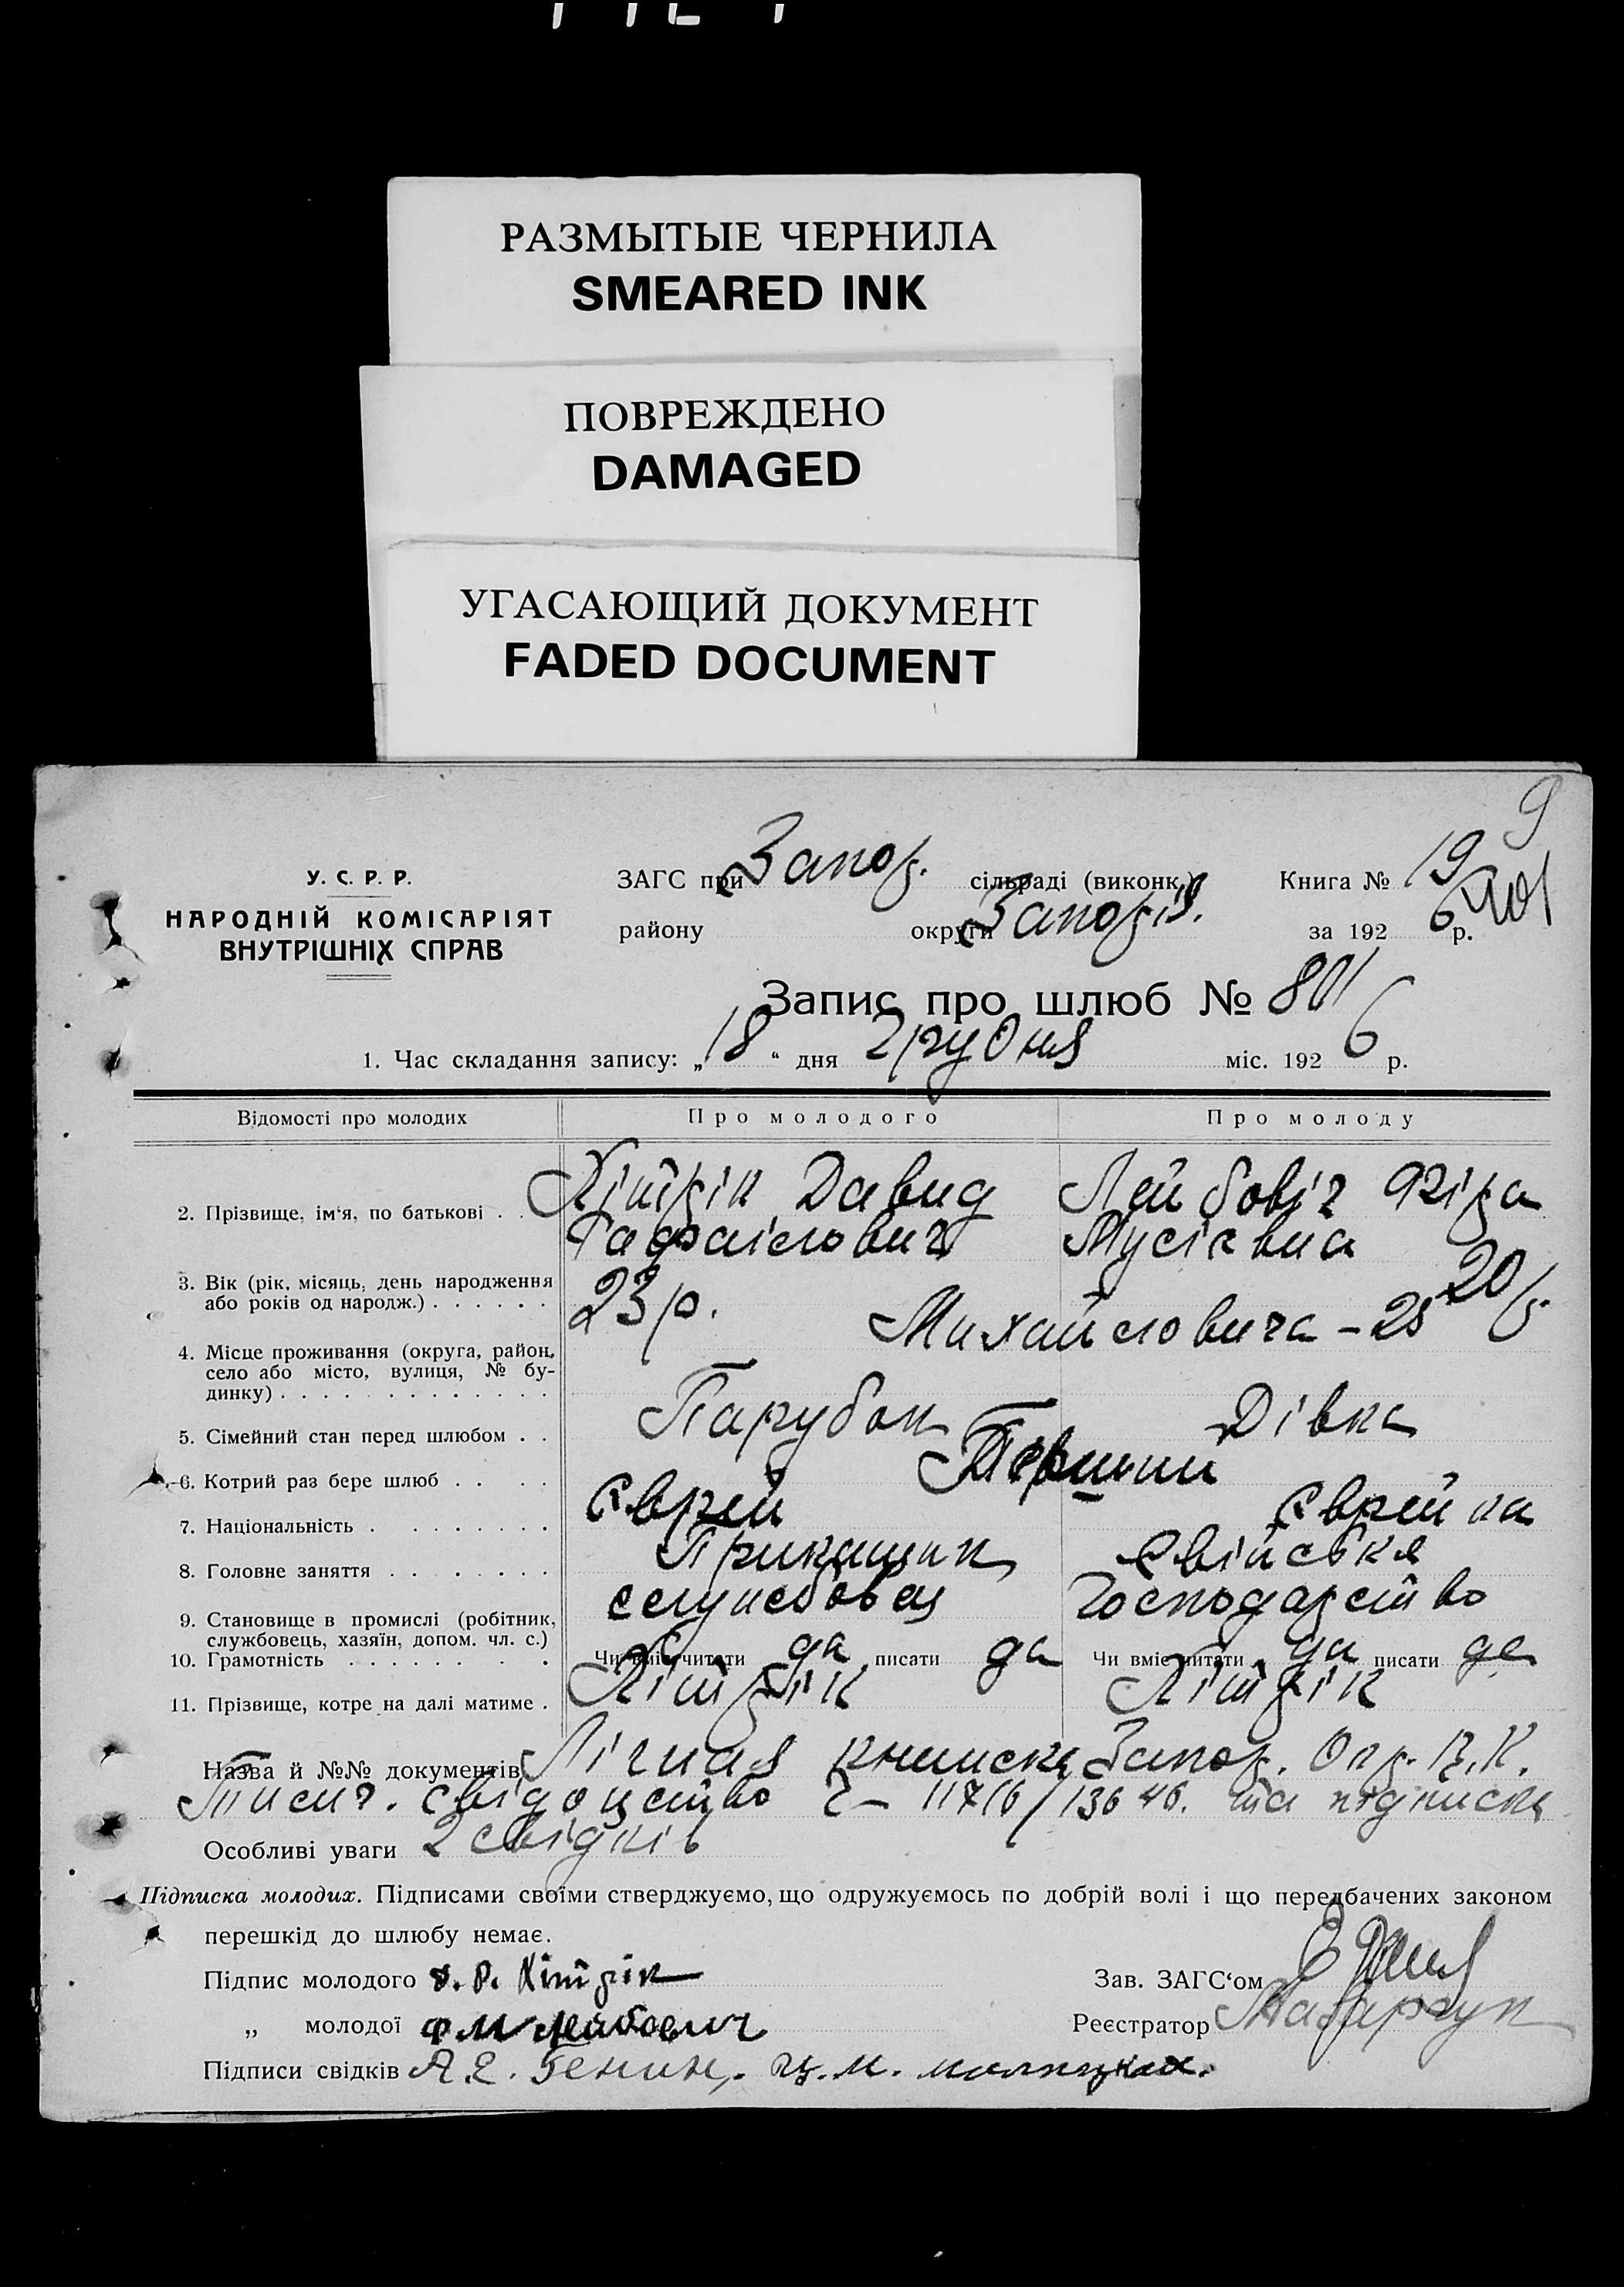 РАЗМЫТЫЕ ЧЕРНИЛА
SMEARED INK
ПОВРЕЖДЕНО
DAMAGED
УГАСАЮЩИЙ ДОКУМЕНТ
FADED DOCUMENT
9
У. С. Р. Р.
НАРОДНІЙ КОМІСАРІЯТ
ВНУТРІШНІХ СПРАВ
ЗАГС при Запор. сільраді (виконк.) Книга № 19
району округи Запоріз. за 1926 р.
Запис про шлюб № 801
1. Час складання запису: „18“ дня грудня міс. 1926 р.
Відомості про молодих Про молодого Про молоду
2. Прізвище, ім‘я, по батькові . . Хітрік Давид Лейбовіч
Рафаілович Мусієвна
3. Вік (рік, місяць, день народження 23 р. 20 р.
або років од народж.) . . . . . .
4. Місце проживання (округа, район, Михайловича – 28
село або місто, вулиця, № бу-
динку) . . . . . . . . . . . . .
5. Сімейний стан перед шлюбом . . Парубок Дівка
6. Котрий раз бере шлюб . . . . Перший
7. Національність . . . . . . . . Єврей Єврейка
8. Головне заняття . . . . . . . Прикащик
9. Становище в промислі (робітник, службовец господарство
службовець, хазяїн, допом. чл. с.)
10. Грамотність . . . . . . . . Чи вміє читати да писати да Чи вміє читати да писати да
11. Прізвище, котре на далі матиме . Хітрік Хітрік
Назва й №№ документів Лічная книжска Запор. Окр. В.К.
свідоцтво 11716/13646. та підписка
Особливі уваги 2 свідків
Підписка молодих. Підписами своїми стверджуємо, що одружуємось по добрій волі і що передбачених законом
перешкід до шлюбу немає.
Підпис молодого Д. Р. Хітрік Зав. ЗАГС‘ом
„ молодої Ф М Лейбович Реєстратор
Підписи свідків А. Е. Генин,